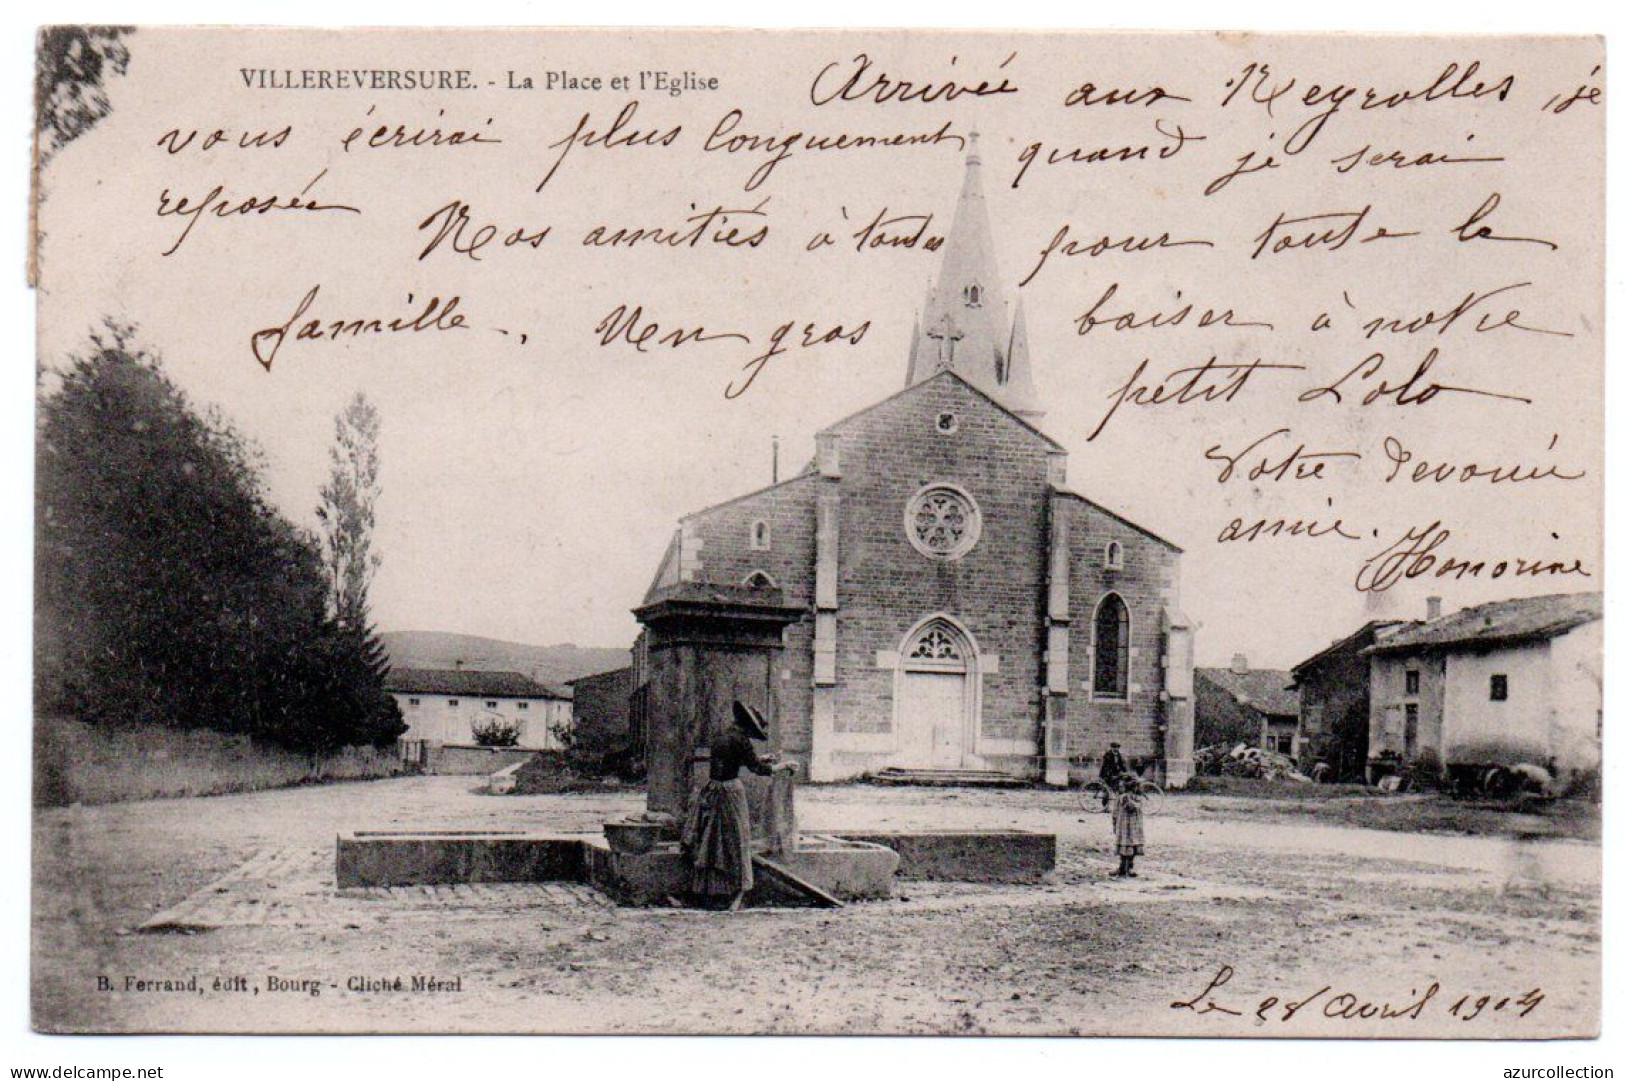 VILLEREVERSURE. - La Place et l'Eglise
Arrivée aux Neyrolles, je
vous écrirai plus longuement quand je serai
reposée Nos amitiés à toutes pour toute la
famille. Un gros baiser à notre
petit Lolo
Votre dévouée
amie.
Honorine
B. Ferrand, édit, Bourg - Cliché Méral
Le 28 Avril 1904
azurcollection